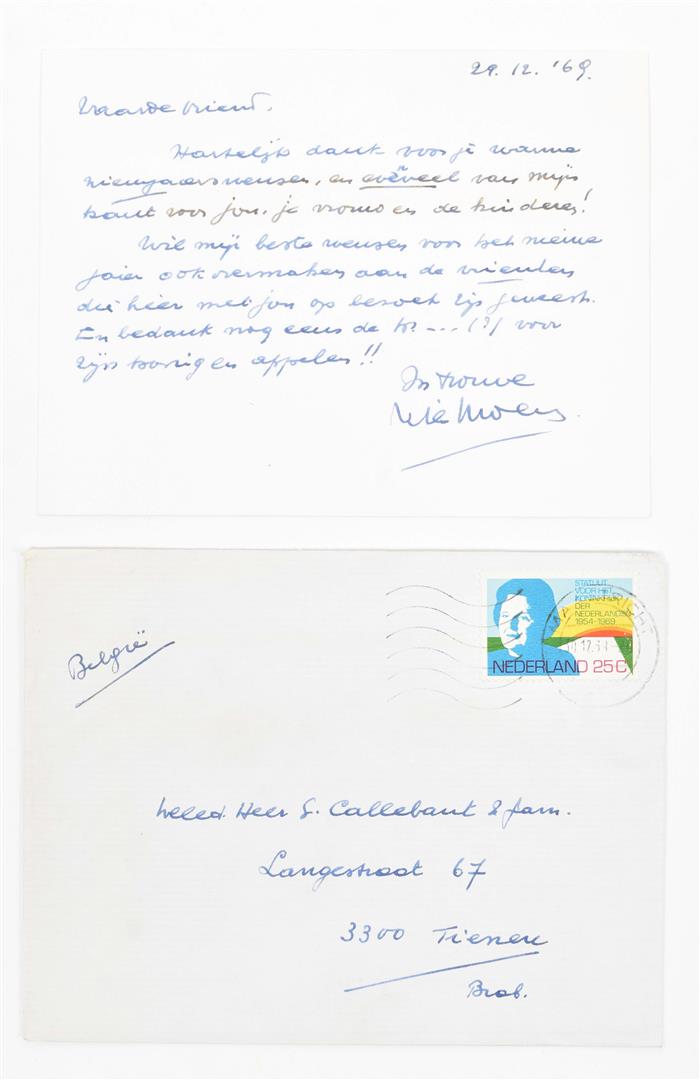 29.12.'69.
Waarde vriend.
Hartelijk dank voor je warme
nieuwjaarswensen, en evenveel van mijn
kant voor jou, je vrouw en de kinderen!
Wil mijn beste wensen voor het nieuwe
jaar ook overmaken aan de vrienden
die hier met jou op bezoek zijn geweest.
En bedank nog eens de hr .... (?) voor
zijn honig en appelen!!
In trouwe
Wies Moens.
België
STATUUT
VOOR HET
KONINKRIJK
DER
NEDERLANDEN
1954-1969
NEDERLAND 25C
Weled. Heer G. Callebaut & fam.
Langestraat 67
3300 Tienen
Brab.